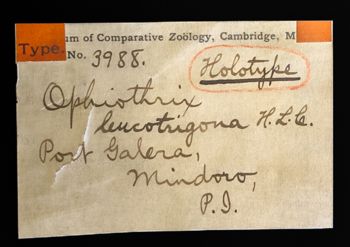 um of Comparative Zoölogy, Cambridge, M
Type.
No. 3988.
Holotype
Ophiothrix
leucotrigona H.L.C.
Port Galera,
Mindoro,
P.I.